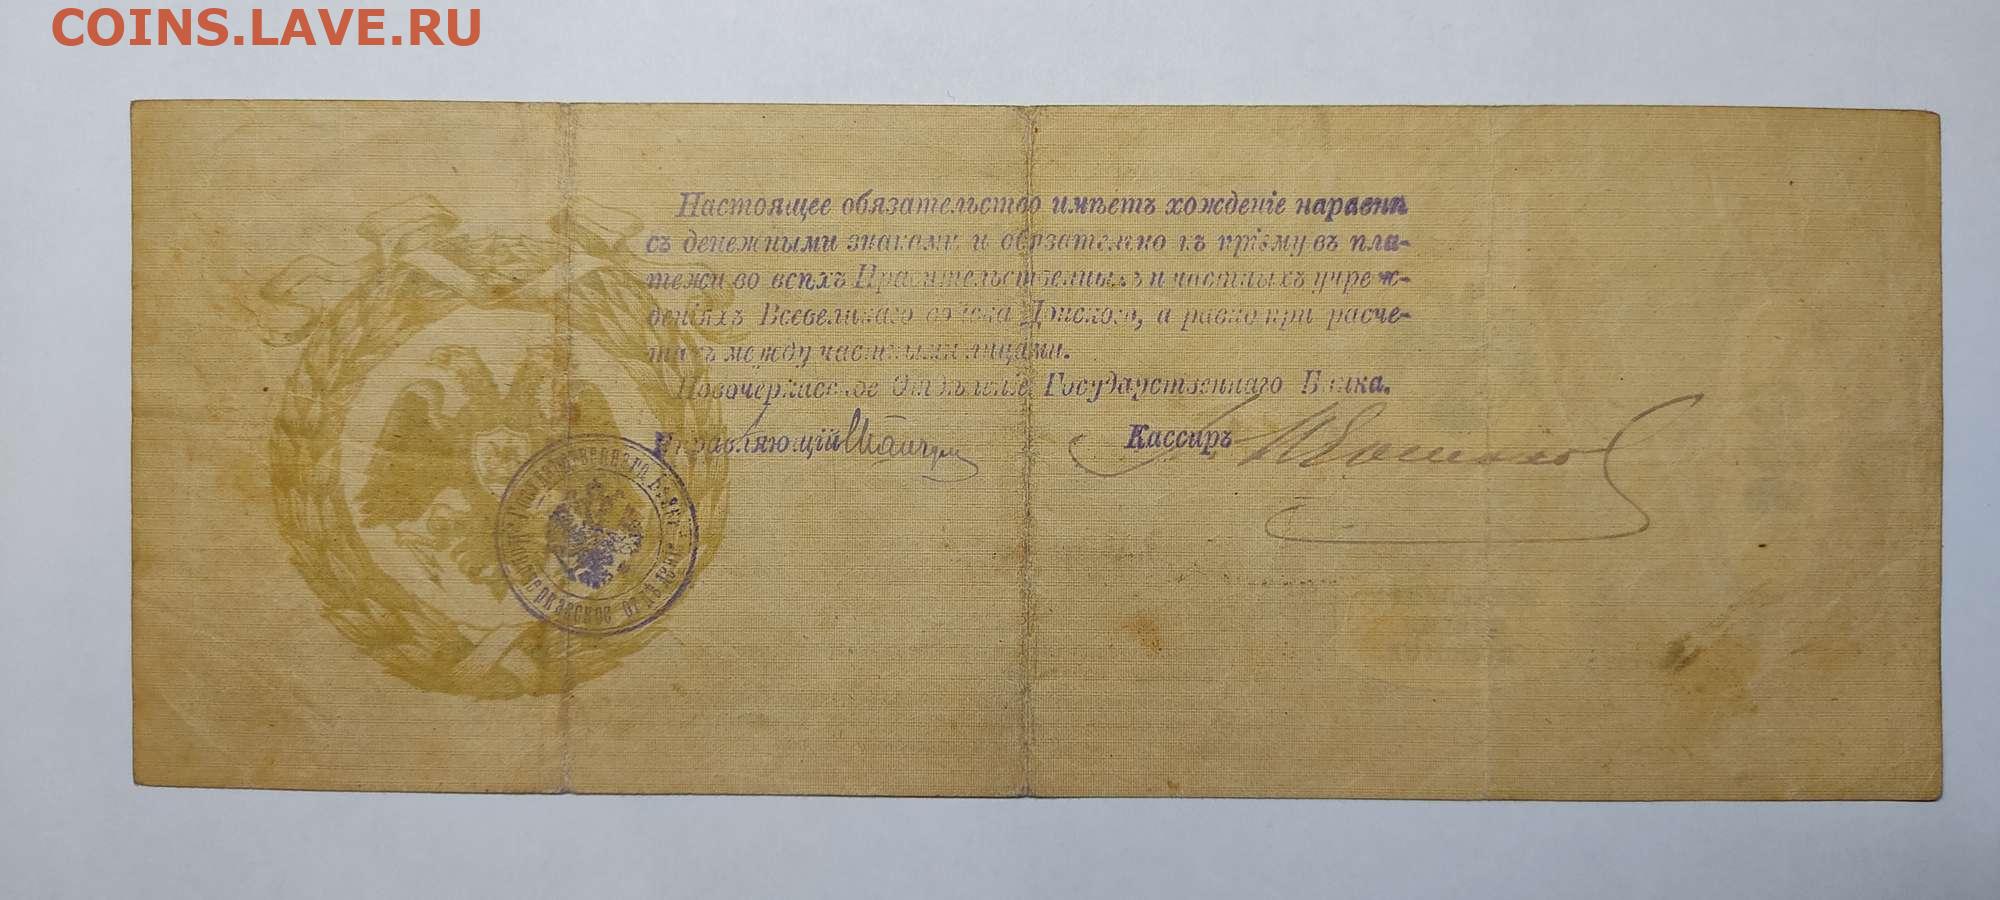 COINS.LAVE.RU
Настоящее обязательство имѣетъ хожденіе наравнѣ
съ денежными знаками и обязательно къ пріему въ пла-
тежи во всѣхъ Правительственныхъ и частныхъ учреж-
деніяхъ Всевеликаго войска Донского, а равно при расче-
тахъ между частными лицами.
Новочеркасское Отдѣленіе Государственнаго Банка.
Управляющій
Кассиръ
Новочеркасское Отдѣленіе Государственнаго Банка